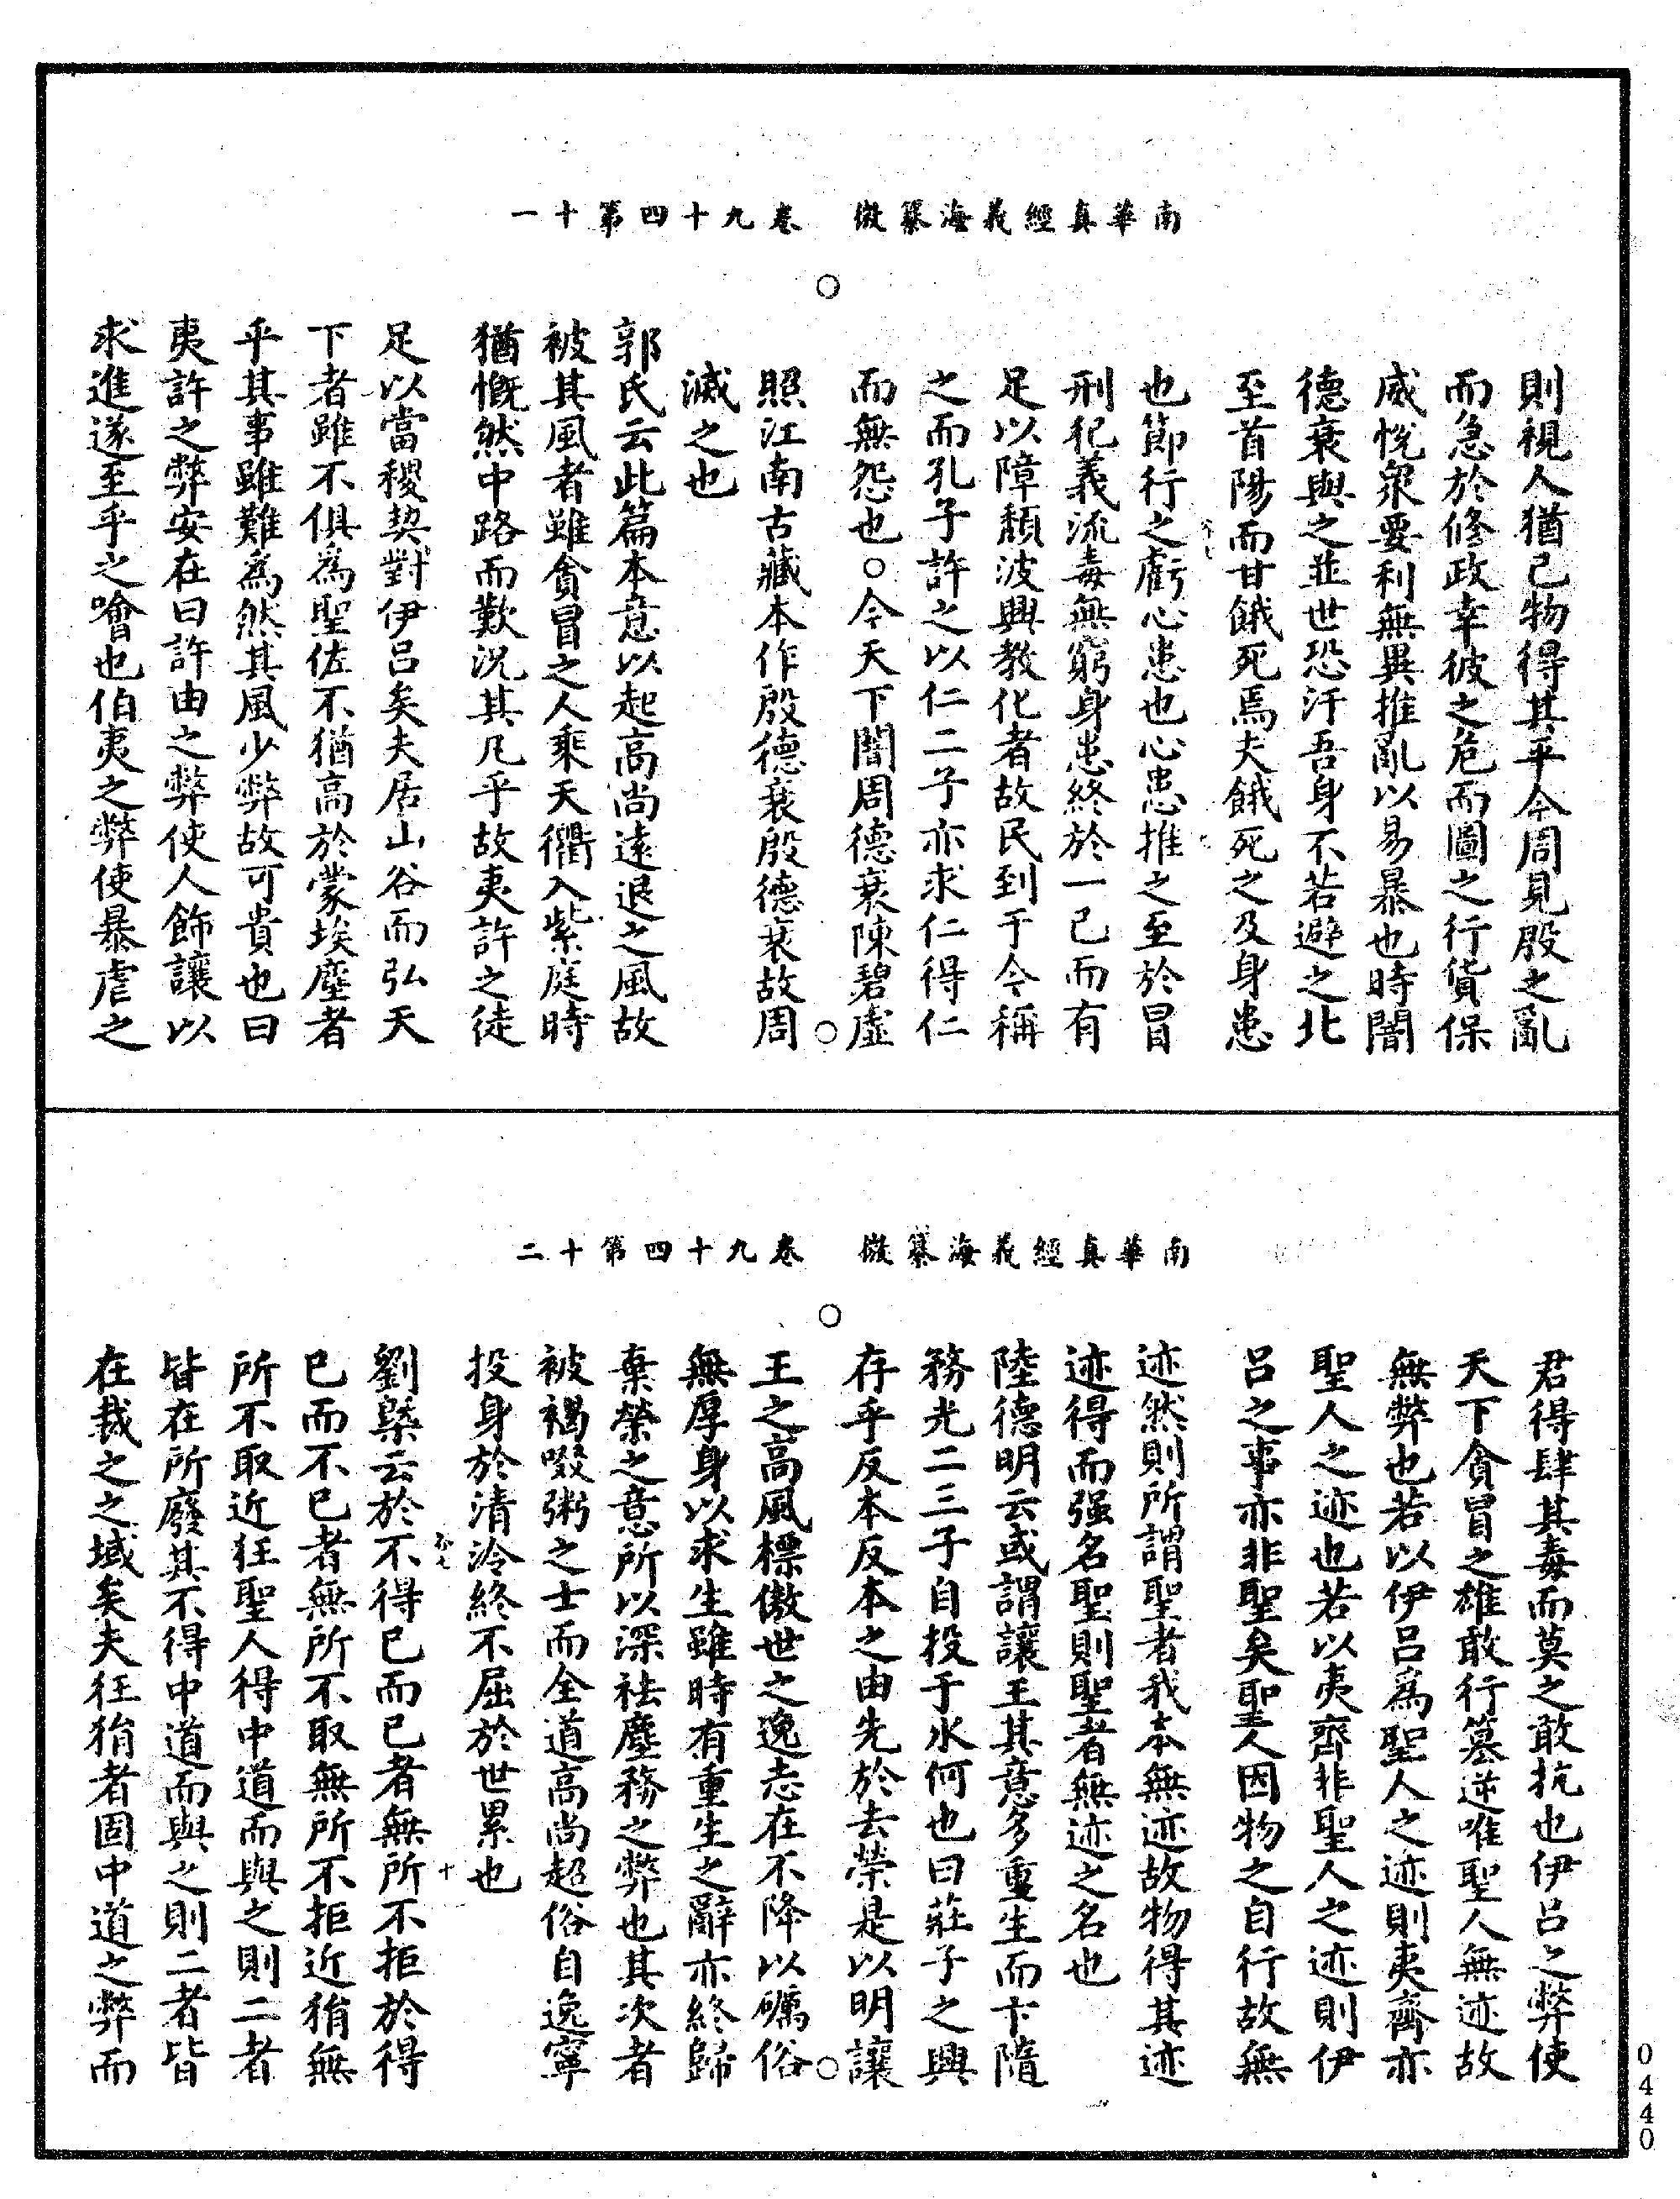 南華真經義海纂微　卷九十四第十一
則視人猶己物得其平今周見殷之亂
而急於修政幸彼之危而圖之行貨保
威悅衆要利無異推亂以易暴也時闇
德衰與之並世恐汙吾身不若避之北
至首陽而甘餓死焉夫餓死之及身患
也節行之虧心患也心患推之至於冒
刑犯義流毒無窮身患終於一己而有
足以障頹波興教化者故民到于今稱
之而孔子許之以仁二子亦求仁得仁
而無怨也○今天下闇周德衰陳碧虛
照江南古藏本作殷德衰殷德衰故周
滅之也
郭氏云此篇本意以起高尚遠退之風故
被其風者雖貪冒之人乘天衢入紫庭時
猶慨然中路而歎況其凡乎故夷許之徒
足以當稷契對伊呂矣夫居山谷而弘天
下者雖不俱為聖佐不猶高於蒙埃塵者
乎其事雖難為然其風少弊故可貴也曰
夷許之弊安在曰許由之弊使人飾讓以
求進遂至乎之噲也伯夷之弊使暴虐之
南華真經義海纂微　卷九十四第十二
君得肆其毒而莫之敢抗也伊呂之弊使
天下貪冒之雄敢行篡逆唯聖人無迹故
無弊也若以伊呂為聖人之迹則夷齊亦
聖人之迹也若以夷齊非聖人之迹則伊
呂之事亦非聖矣聖人因物之自行故無
迹然則所謂聖者我本無迹故物得其迹
迹得而强名聖則聖者無迹之名也
陸德明云或謂讓王其意多重生而卞隨
務光二三子自投于水何也曰莊子之興
存乎反本反本之由先於去榮是以明讓
王之高風標傲世之逸志在不降以礪俗
無厚身以求生雖時有重生之辭亦終歸
棄榮之意所以深祛塵務之弊也其次者
被褐啜粥之士而全道高尚超俗自逸寧
投身於清泠終不屈於世累也
劉槩云於不得已而已者無所不拒於得
已而不已者無所不取無所不拒近狷無
所不取近狂聖人得中道而與之則二者
皆在所廢其不得中道而與之則二者皆
在裁之之域矣夫狂狷者固中道之弊而
0440